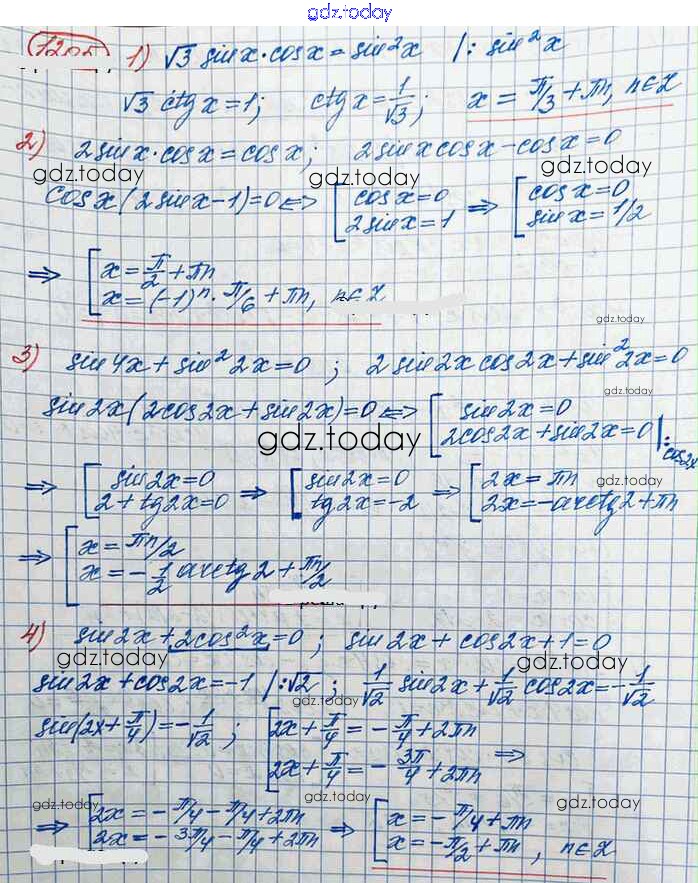 gdz.today
1205 1) √3 sinx·cosx = sin²x |: sin²x
√3 ctgx = 1; ctgx = 1/√3; x = π/3 + πn, n∈Z
2) 2sinx·cosx = cosx; 2sinxcosx - cosx = 0
gdz.today gdz.today gdz.today
cosx(2sinx-1)=0 <=> [cosx=0 2sinx=1 => [cosx=0 sinx=1/2
=> [x = π/2 + πn
x = (-1)ⁿ·π/6 + πn, n∈Z
gdz.today
3) sin4x + sin²2x = 0; 2sin2xcos2x + sin²2x = 0
gdz.today
sin2x(2cos2x + sin2x) = 0 <=> [sin2x=0 2cos2x + sin2x = 0 |: cos2x
gdz.today gdz.today
=> [sin2x=0 2+tg2x=0 => [sin2x=0 tg2x=-2 => [2x = πn 2x = -arctg2 + πn
gdz.today
=> [x = πn/2
x = -1/2 arctg2 + πn/2
4) sin2x + 2cos²x = 0; sin2x + cos2x + 1 = 0
gdz.today gdz.today
sin2x + cos2x = -1 |:√2; 1/√2 sin2x + 1/√2 cos2x = -1/√2
gdz.today
sin(2x + π/4) = -1/√2; [2x + π/4 = -π/4 + 2πn
2x + π/4 = -3π/4 + 2πn =>
gdz.today gdz.today gdz.today
=> [2x = -π/4 - π/4 + 2πn => [x = -π/4 + πn
2x = -3π/4 - π/4 + 2πn x = -π/2 + πn, n∈Z
gdz.today gdz.today